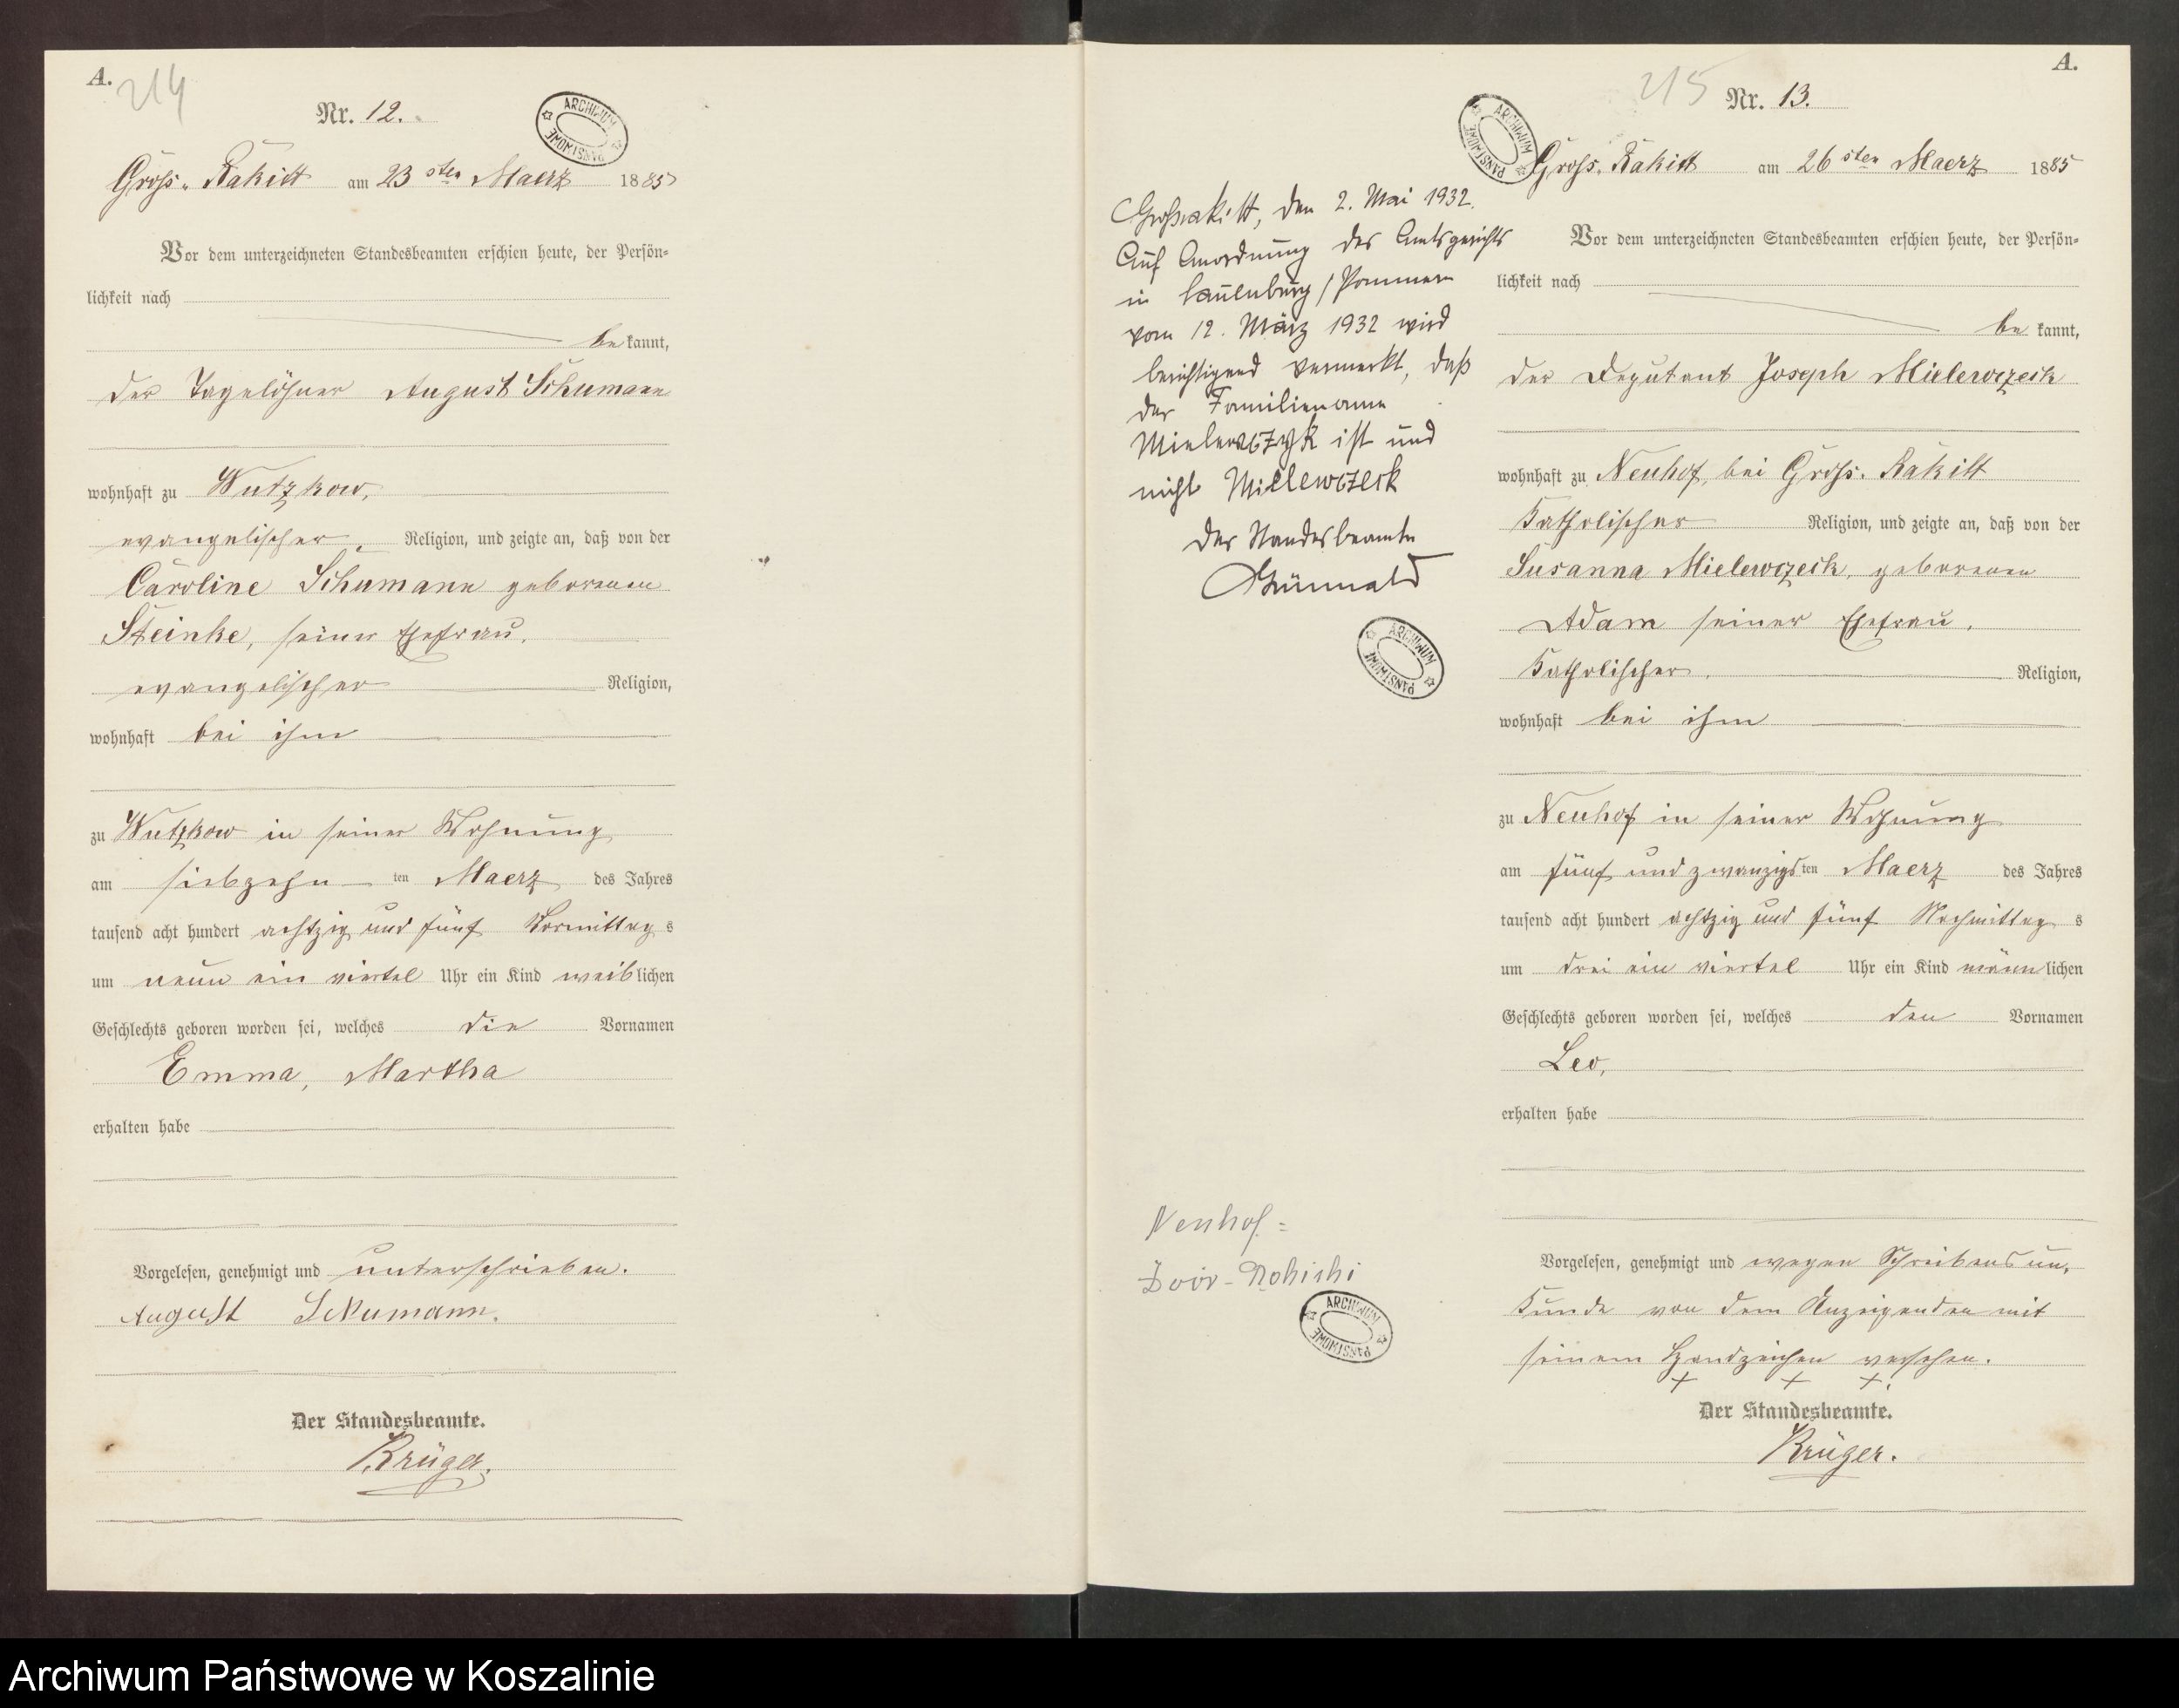 A.
214
Nr. 12.
ARCHIWUM PAŃSTWOWE
Gross. Rakitt am 23 sten Maerz 1885
Vor dem unterzeichneten Standesbeamten erschien heute, der Persön-
lichkeit nach
be kannt,
der Tagelöhner August Schumann
wohnhaft zu Wutzkow,
evangelischer Religion, und zeigte an, daß von der
Caroline Schumann geborenen
Steinke, seiner Ehefrau.
evangelischer Religion,
wohnhaft bei ihm
zu Wutzkow in seiner Wohnung
am siebzehn ten Maerz des Jahres
tausend acht hundert achtzig und fünf Vormittag s
um neun ein viertel Uhr ein Kind weib lichen
Geschlechts geboren worden sei, welches die Vornamen
Emma, Martha
erhalten habe
Vorgelesen, genehmigt und unterschrieben.
August Schumann.
Der Standesbeamte.
Krüger.
A.
215
Nr. 13.
ARCHIWUM PAŃSTWOWE
Gross. Rakitt am 26 sten Maerz 1885
Vor dem unterzeichneten Standesbeamten erschien heute, der Persön-
lichkeit nach
be kannt,
der Deputant Joseph Mielewczeck
wohnhaft zu Neuhof, bei Gross. Rakitt
Katholischer Religion, und zeigte an, daß von der
Susanna Mielewczeck, geborenen
Adam seiner Ehefrau,
Katholischer, Religion,
wohnhaft bei ihm
zu Neuhof in seiner Wohnung
am fünf und zwanzigs ten Maerz des Jahres
tausend acht hundert achtzig und fünf Nachmittag s
um drei ein viertel Uhr ein Kind männ lichen
Geschlechts geboren worden sei, welches den Vornamen
Leo,
erhalten habe
Vorgelesen, genehmigt und wegen Schreibensun-
kunde von dem Anzeigenden mit
seinem Handzeichen versehen.
+ + +
Der Standesbeamte.
Krüger.
Großrakitt, den 2. Mai 1932.
Auf Anordnung des Amtsgerichts
in Lauenburg / Pommern
vom 12. März 1932 wird
berichtigend vermerkt, daß
der Familienname
Mielewczyk ist und
nicht Mielewczeck
Der Standesbeamte
Grünwald
ARCHIWUM PAŃSTWOWE
Neuhof =
ARCHIWUM PAŃSTWOWE
Archiwum Państwowe w Koszalinie